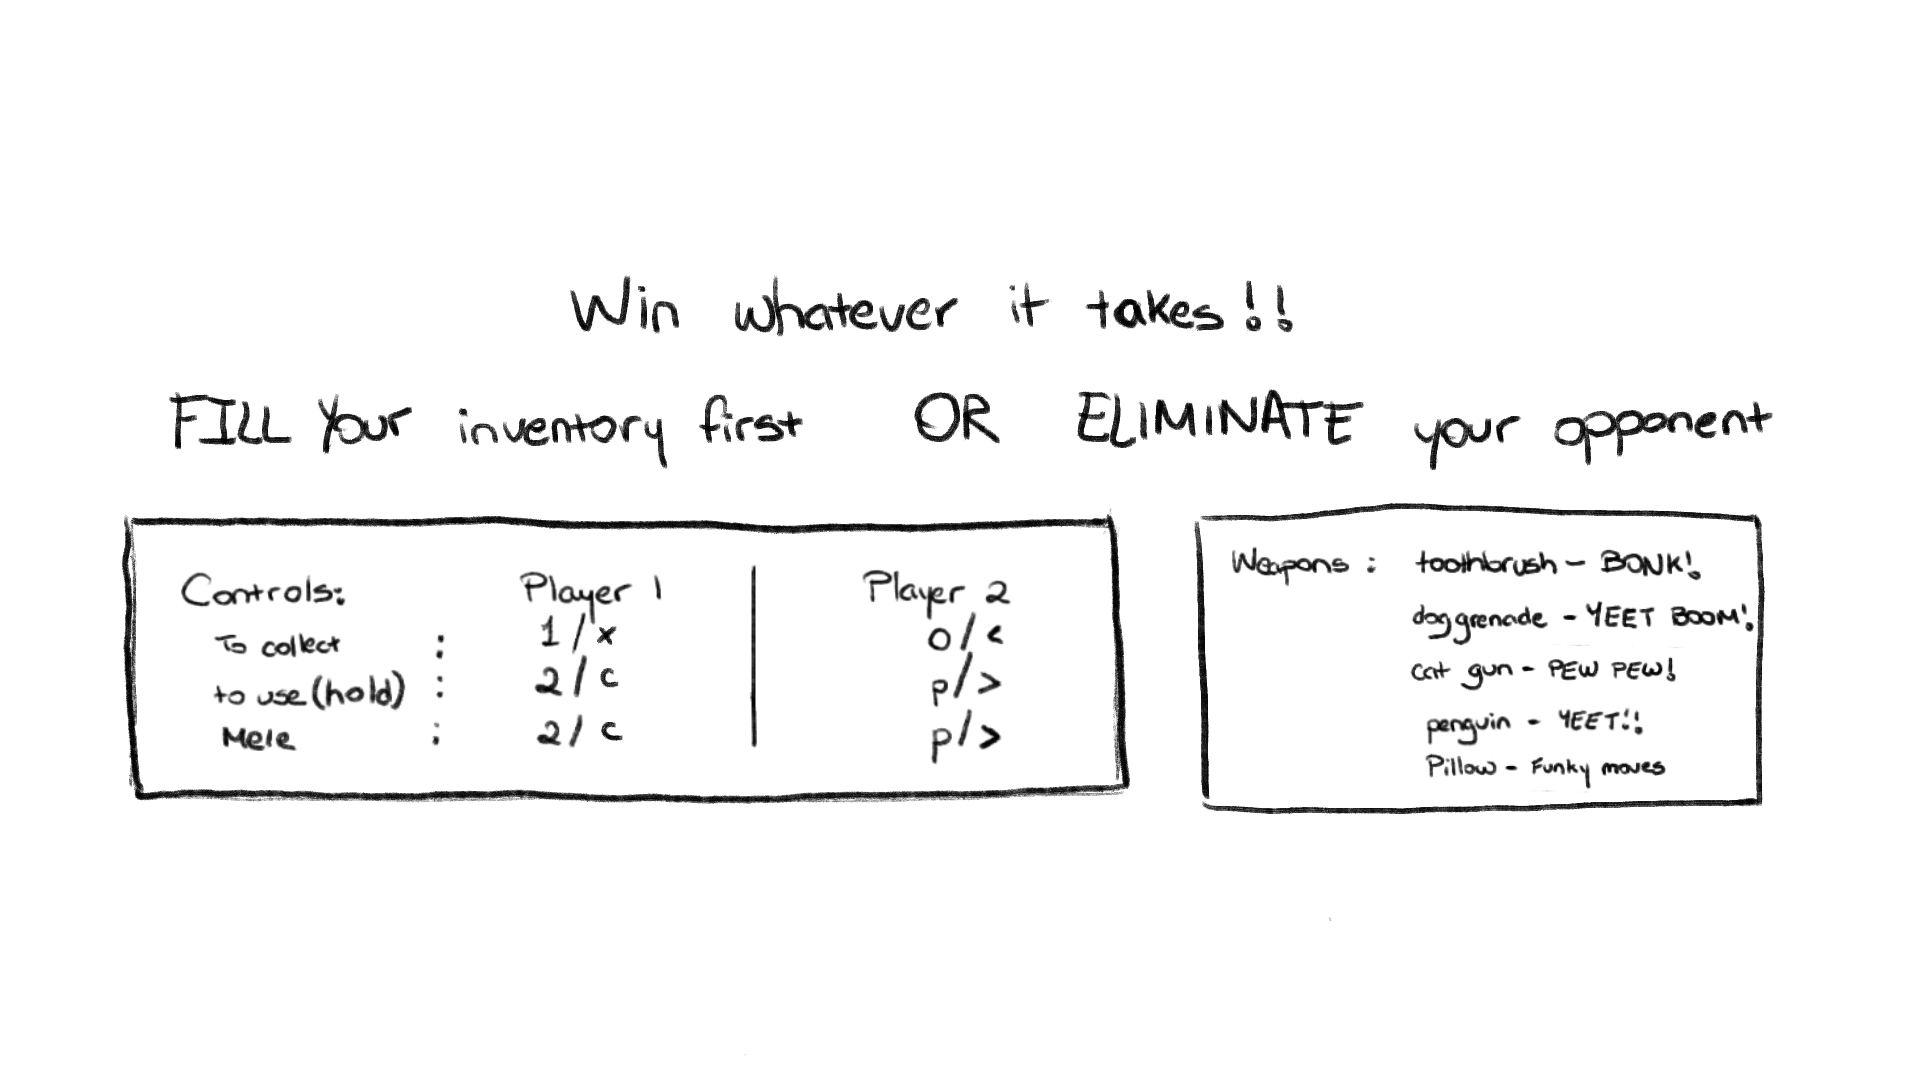 Win whatever it takes!!
FILL Your inventory first OR ELIMINATE your opponent
Controls: Player 1 Player 2
To collect : 1/x o/<
to use (hold) : 2/c p/>
Mele : 2/c p/>
Weapons : toothbrush - BONK!
dog grenade - YEET BOOM!
cat gun - PEW PEW!
penguin - YEET!!
Pillow - Funky moves